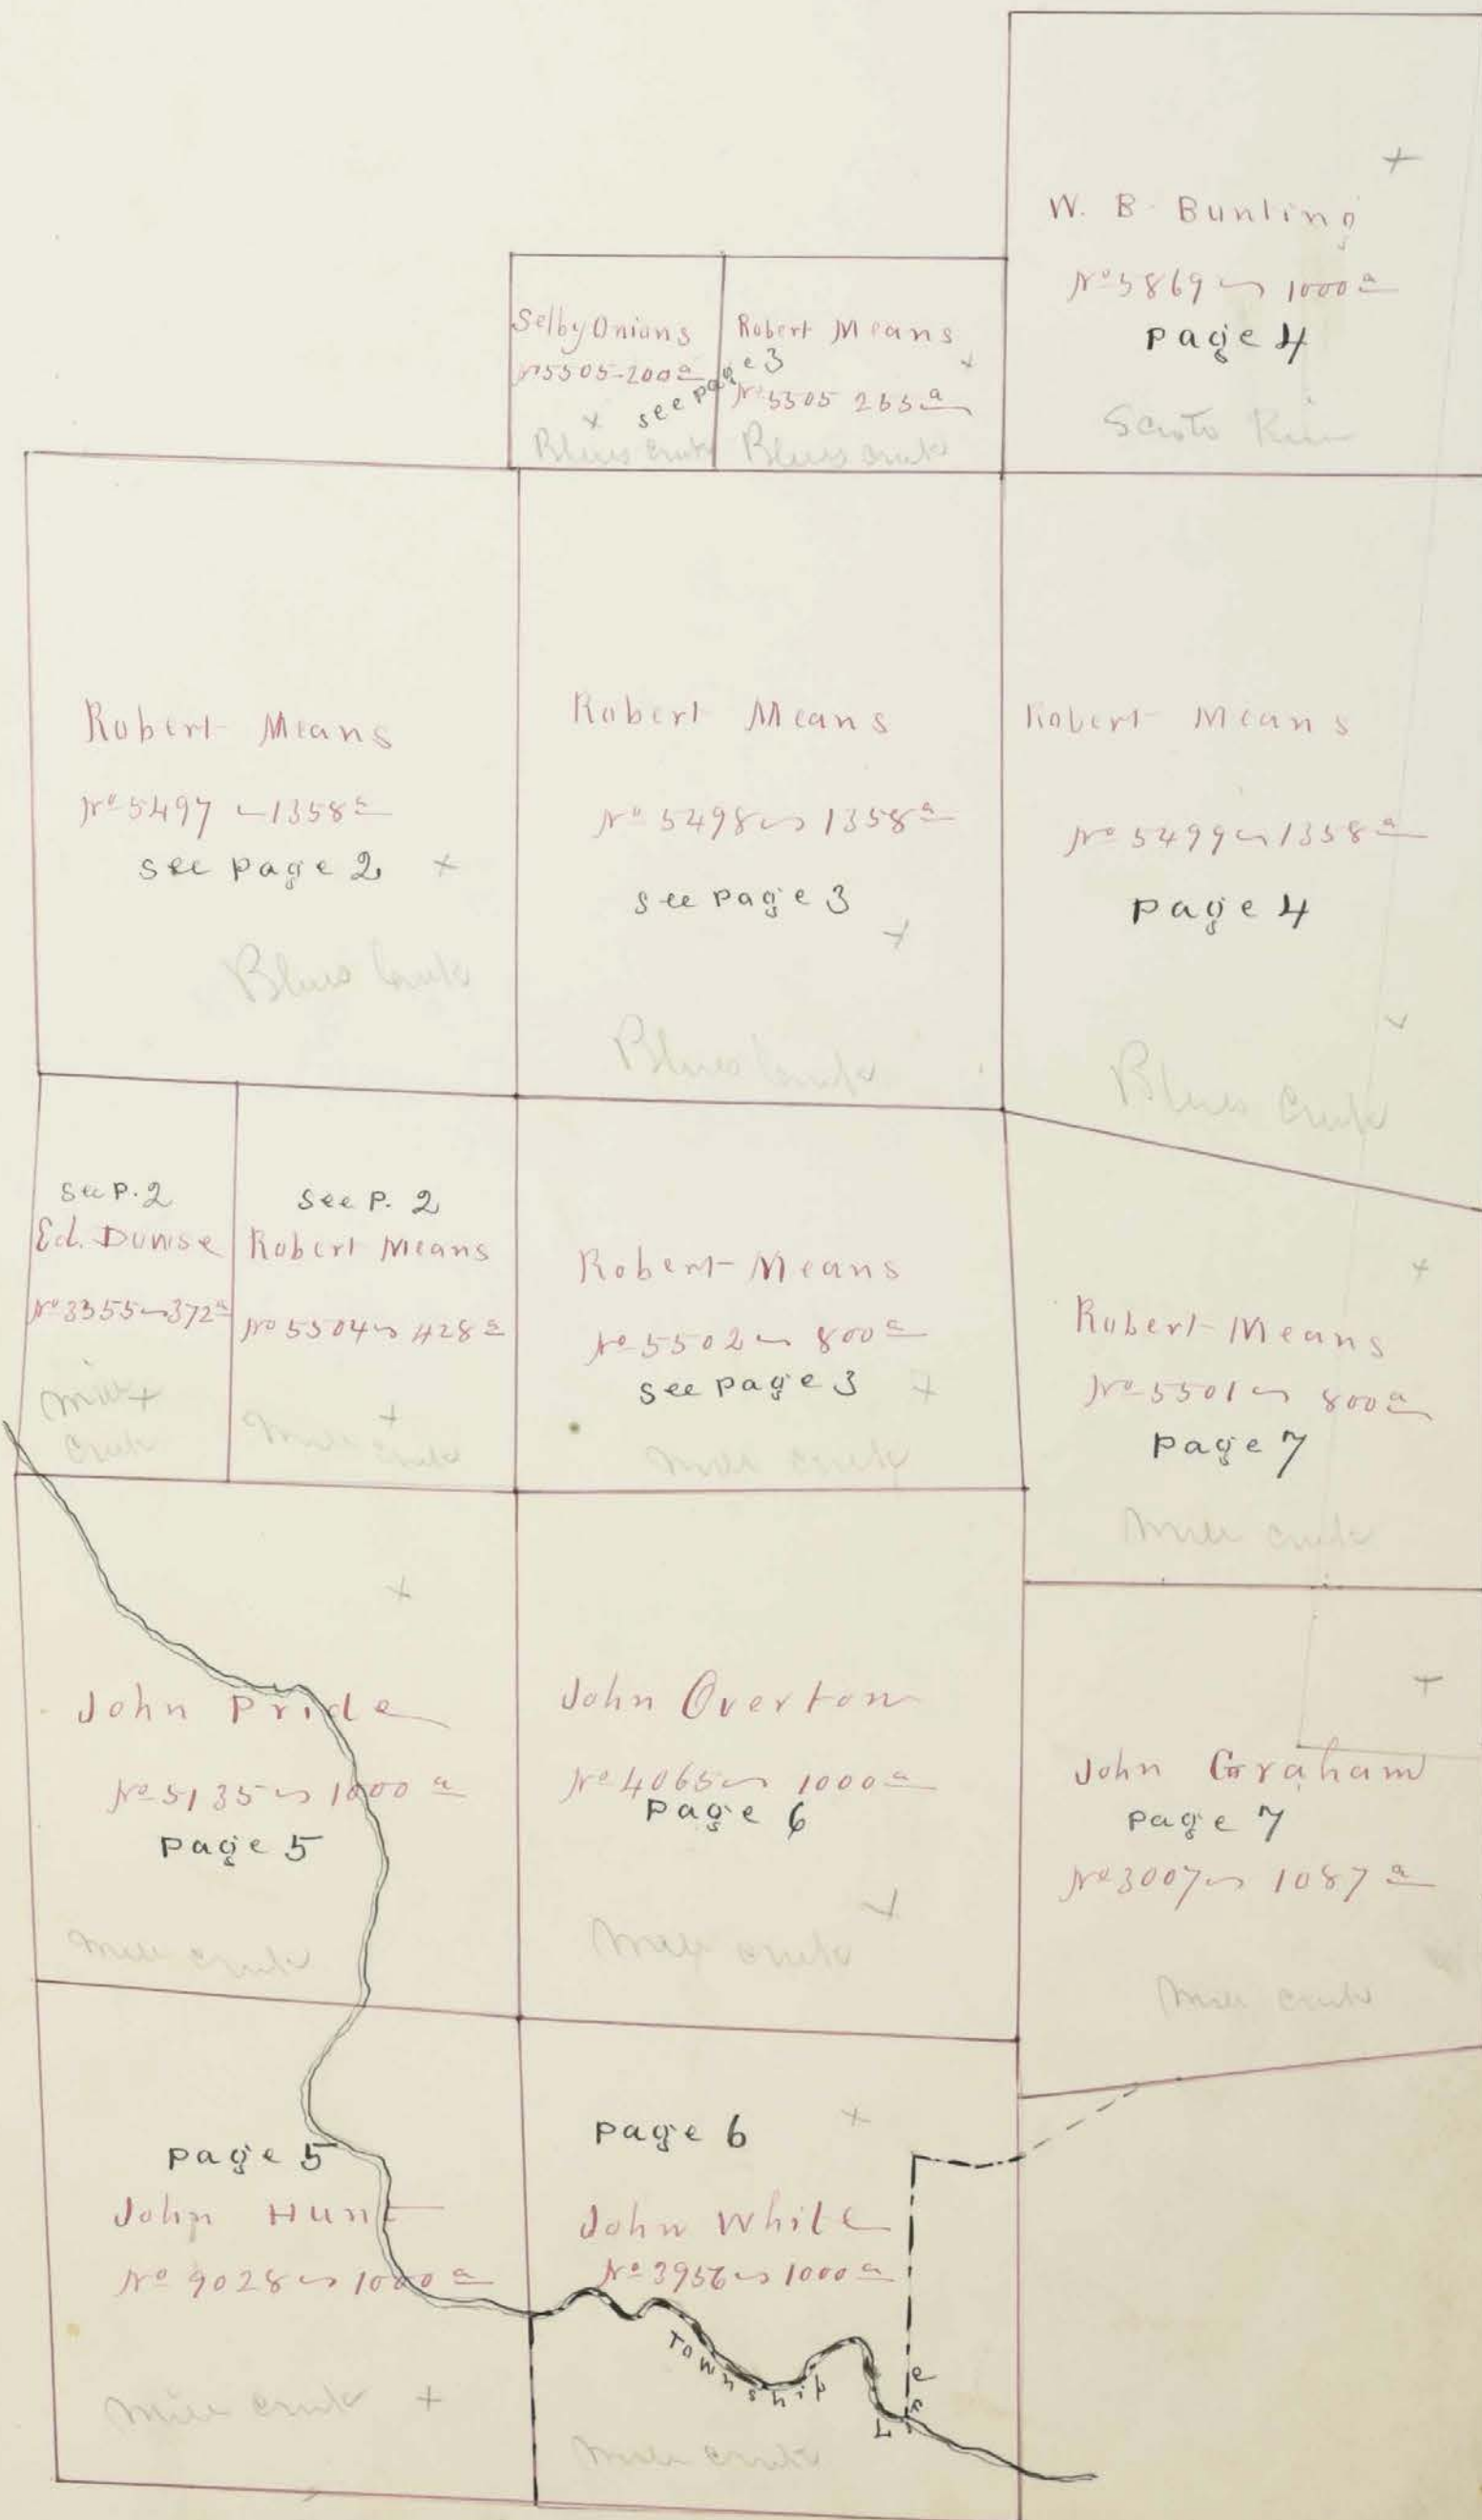 W. B. Bunting
No 5869 ~ 1000 a
page 4
Scioto River
Selby Onions
No 5505-200 a
Blues creek
Robert Means
No 5505 265 a
Blues creek
see page 3
Robert Means
No 5497 ~ 1358 a
see page 2
Blues Creek
Robert Means
No 5498 ~ 1358 a
see page 3
Blues Creek
Robert Means
No 5499 ~ 1358 a
page 4
Blues Creek
See P. 2
Ed.
No 3355 ~ 372 a
Mill
Creek
See P. 2
Robert Means
No 5504 ~ 428 a
Mill creek
Robert Means
No 5502 ~ 800 a
see page 3
Mill creek
Robert Means
No 5501 ~ 800 a
page 7
Mill creek
John Pride
No 5135 ~ 1000 a
page 5
Mill creek
John Overton
No 4065 ~ 1000 a
page 6
Mill creek
John Graham
page 7
No 3007 ~ 1087 a
Mill creek
page 5
John Hunt
No 9028 ~ 1000 a
Mill creek
page 6
John White
No 3956 ~ 1000 a
Township Line
Mill creek